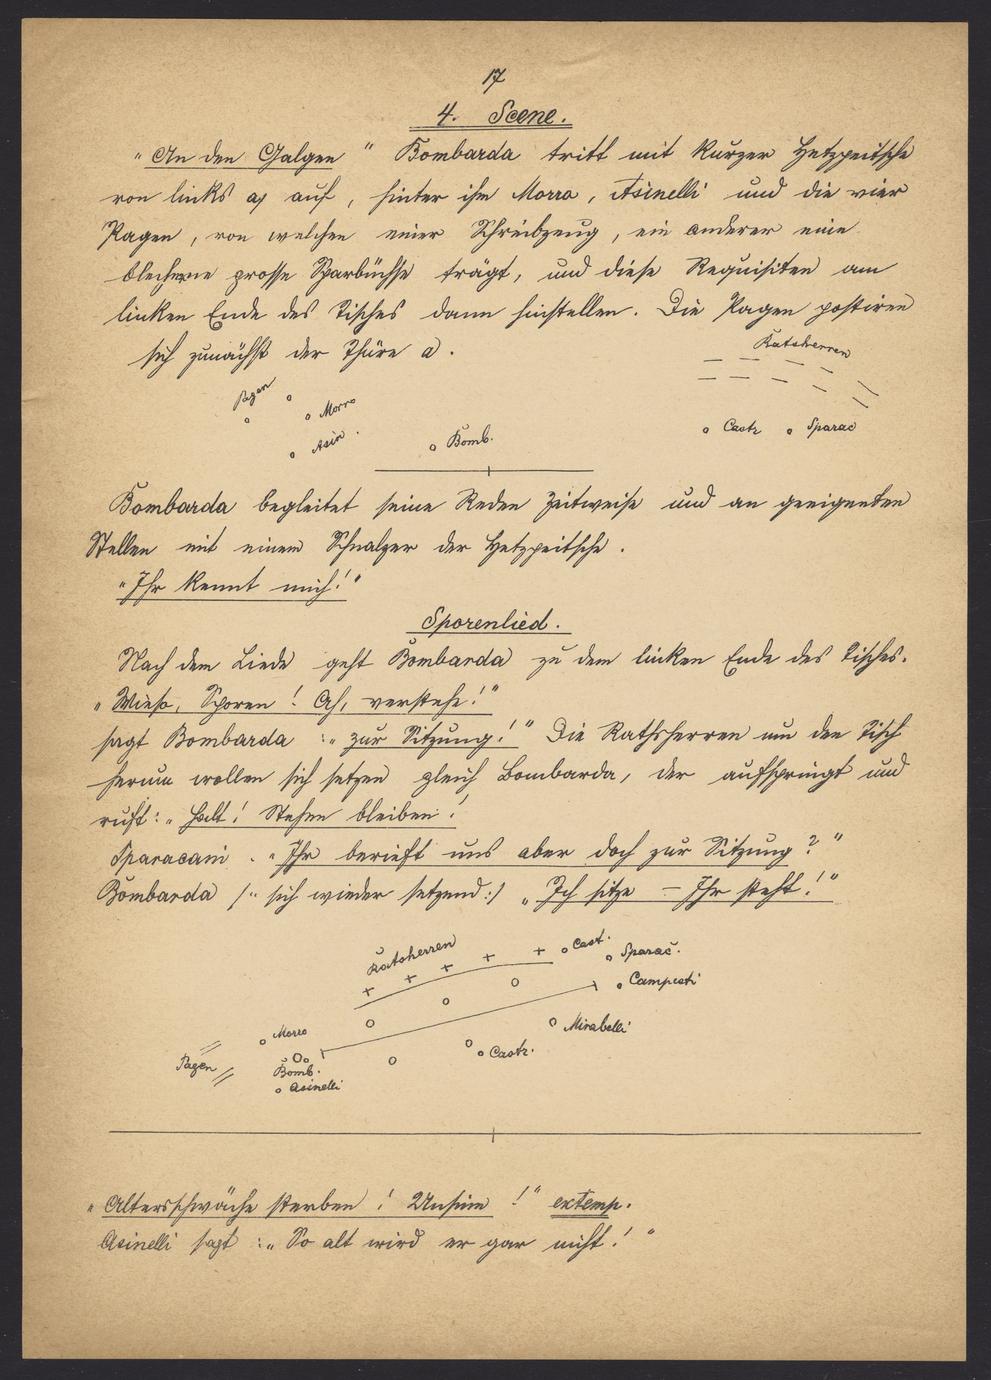 17
4. Scene.
"An den Galgen" Bombarda tritt mit kurzer Hetzpeitsche
von links a) auf, hinter ihm Morro, Asinelli und die vier
Pagen, von welchen einer Schreibzeug, ein anderer eine
blecherne grosse Sparbüchse trägt, und diese Requisiten am
linken Ende des Tisches dann hinstellen. Die Pagen postiren
sich zunächst der Thüre a.
Ratsherren
Pagen
Morro
Asin.
Bomb.
Castr
Sparac
Bombarda begleitet seine Reden zeitweise und an geeigneten
Stellen mit einem Schnalzer der Hetzpeitsche.
"Ihr kennt mich!"
Sporenlied.
Nach dem Liede geht Bombarda zu dem linken Ende des Tisches.
"Wieso, Sporen! Ah, verstehe!"
sagt Bombarda: "zur Sitzung!" Die Rathsherren um den Tisch
herum wollen sich setzen gleich Bombarda, der aufspringt und
ruft: "Halt! Stehen bleiben!
Sparacani. "Ihr berieft uns aber doch zur Sitzung?"
Bombarda /: sich wieder setzend :/ "Ich sitze – Ihr steht!"
Ratsherren
Cast.
Sparac.
Campesti
Mirabelli
Castr.
Morro
Pagen
Bomb.
Asinelli
"Altersschwäche sterben! Unsinn!" extemp.
Asinelli sagt: "So alt wird er gar nicht!"